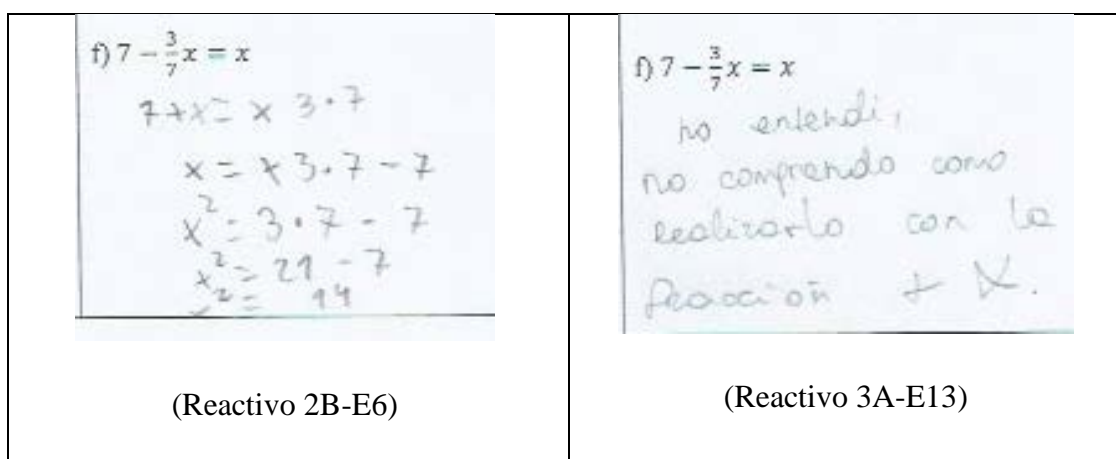 f) 7 − 3/7 x = x
7+x= x 3·7
x = x 3·7 - 7
x² = 3·7 - 7
x² = 21 - 7
x² = 14
(Reactivo 2B-E6)
f) 7 − 3/7 x = x
no entendi,
no comprendo como
realizarlo con la
fracción + X.
(Reactivo 3A-E13)